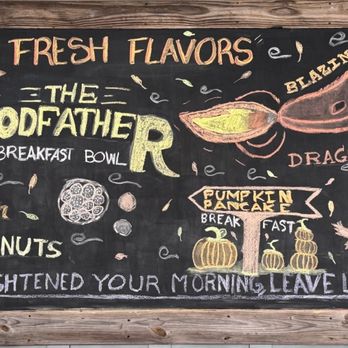 FRESH FLAVORS
BLAZIN
THE
ODFATHER
BREAKFAST BOWL
DRAG
PUMPKIN
PANCAKE
BREAK FAST
NUTS
GHTENED YOUR MORNING, LEAVE